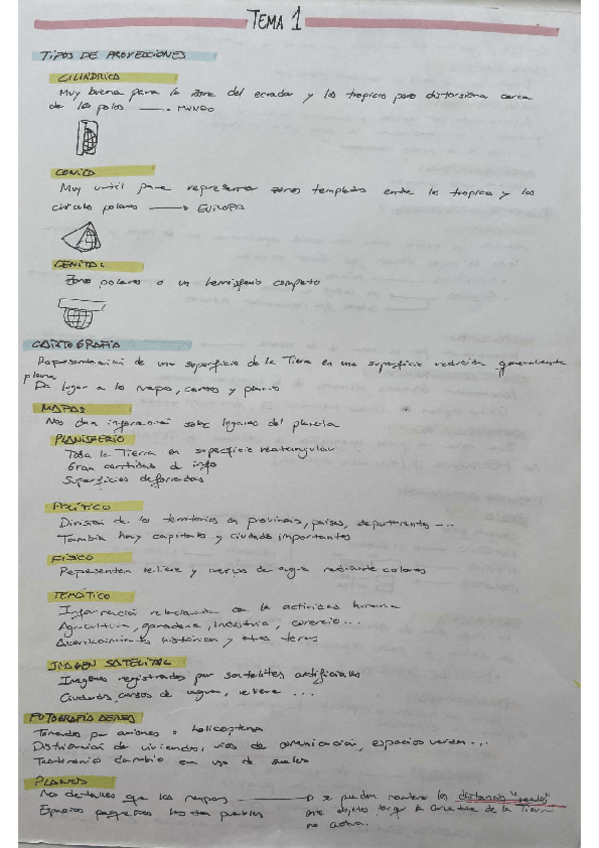 TEMA 1
TIPOS DE PROYECCIONES
CILINDRICA
Muy buena para la zona del ecuador y los tropicos pero distorsiona cerca
de los polos → MUNDO
CONICA
Muy util para representar zonas templadas entre los tropicos y los
circulo polares → EUROPA
CENITAL
Zona polares o un hemisferio completo
CARTOGRAFIA
Representación de una superficie de la Tierra en una superficie reducida generalmente
plana
Da lugar a los mapas, cartas y planos
MAPAS
Nos dan informacion sobre lugares del planeta
PLANISFERIO
Toda la Tierra en superficie rectangular
Gran cantidad de info
Superficies deformadas
POLÍTICO
Division de los territorios en provincias, países, departamentos ...
Tambien hay capitales y ciudades importantes
FISICO
Representan relieve y cuerpos de agua mediante colores
TEMÁTICO
Información relacionada con la actividad humana
Agricultura, ganaderia, industria, comercio...
Acontecimientos históricos y otros temas
IMAGEN SATELITAL
Imagenes registradas por satelites artificiales
Ciudades, cursos de agua, relieve ...
FOTOGRAFÍA AEREA
Tomadas por aviones o helicopteros
Distribucion de viviendas, vias de comunicación, espacios verdes...
Testimonio cambio en uso de suelos
PLANOS
que los mapas → se pueden mostrar las distancias "reales"
Espacios pequeños
entre objetos porque la curvatura de la Tierra
no actua.